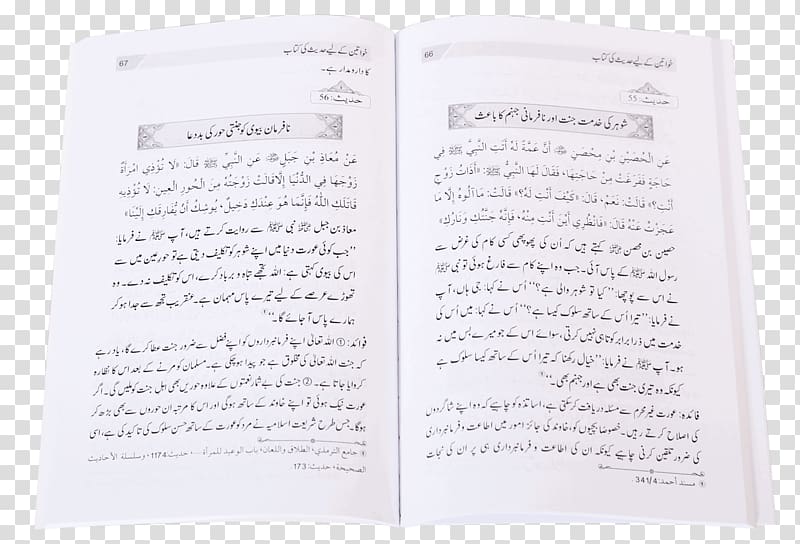 66
خواتین کے لیے حدیث کی کتاب
حدیث: 55
شوہر کی خدمت جنت اور نافرمانی جہنم کا باعث
عَنِ الْحُصَيْنِ بْنِ مِحْصَنٍ ﷺ أَنَّ عَمَّةً لَهُ أَتَتِ النَّبِيَّ ﷺ فِي
حَاجَةٍ فَفَرَغَتْ مِنْ حَاجَتِهَا، فَقَالَ لَهَا النَّبِيُّ ﷺ: «أَذَاتُ زَوْجٍ
أَنْتِ؟» قَالَتْ: نَعَمْ، قَالَ: «كَيْفَ أَنْتِ لَهُ؟» قَالَتْ: مَا آلُوهُ إِلَّا مَا
عَجَزْتُ عَنْهُ قَالَ: «فَانْظُرِي أَيْنَ أَنْتِ مِنْهُ، فَإِنَّهُ جَنَّتُكِ وَنَارُكِ»
حصین بن محصن کہتے ہیں کہ اُن کی پھوپھی کسی کام کی غرض سے
رسول اللہ ﷺ کے پاس آئی۔ جب وہ اپنے کام سے فارغ ہوئی تو نبی ﷺ
نے اس سے پوچھا: ’’کیا تو شوہر والی ہے؟‘‘ اُس نے کہا: جی ہاں، آپ
نے فرمایا: ’’تیرا اُس کے ساتھ سلوک کیسا ہے؟‘‘ اُس نے کہا: میں اُس کی
خدمت میں ذرا برابر کوتاہی نہیں کرتی، سوائے اس کے جو میرے بس میں نہ
ہو۔ آپ ﷺ نے فرمایا: ’’خیال رکھنا کہ تیرا اُس کے ساتھ کیسا سلوک ہے
کیونکہ وہ تیری جنت بھی ہے اور جہنم بھی۔‘‘
فائدہ: عورت غیر محرم سے مسئلہ دریافت کر سکتی ہے، اساتذہ کو چاہیے کہ وہ اپنے شاگردوں
کی اصلاح کرتے رہیں۔ خصوصاً بچیوں کو، خاوند کی جائز امور میں اطاعت و فرمانبرداری
کی ضرور تلقین کرنی چاہیے کیونکہ ان کی اطاعت و فرمانبرداری ہی پر ان کی نجات
① مسند أحمد: 341/4.
خواتین کے لیے حدیث کی کتاب
67
کا دارومدار ہے۔
حدیث: 56
نافرمان بیوی کو جنتی حور کی بددعا
عَنْ مُعَاذِ بْنِ جَبَلٍ عَنِ النَّبِيِّ ﷺ قَالَ: «لَا تُؤْذِي امْرَأَةٌ
زَوْجَهَا فِي الدُّنْيَا إِلَّا قَالَتْ زَوْجَتُهُ مِنَ الْحُورِ الْعِينِ: لَا تُؤْذِيهِ
قَاتَلَكِ اللّٰهُ فَإِنَّمَا هُوَ عِنْدَكِ دَخِيلٌ، يُوشِكُ أَنْ يُفَارِقَكِ إِلَيْنَا»
معاذ بن جبل نبی ﷺ سے روایت کرتے ہیں، آپ ﷺ نے فرمایا:
’’جب کوئی عورت دنیا میں اپنے شوہر کو تکلیف دیتی ہے تو حورعین میں سے
اس کی بیوی کہتی ہے: اللہ تجھے تباہ و برباد کرے، اس کو تکلیف نہ دے۔ وہ
تھوڑے عرصے کے لیے تیرے پاس مہمان ہے۔ عنقریب تجھ سے جدا ہو کر
ہمارے پاس آ جائے گا۔‘‘①
فوائد: ① اللہ تعالیٰ اپنے فرمانبرداروں کو اپنے فضل سے ضرور جنت عطا کرے گا، یاد رہے
کہ جنت اللہ تعالیٰ کی مخلوق ہے جو پیدا ہو چکی ہے۔ مسلمان کو مرنے کے بعد اس کا نظارہ
کروایا جاتا ہے۔ ② جنت کی بے شمار نعمتوں کے علاوہ حوریں بھی اہل جنت کو ملیں گی۔ اگر
عورت نیک ہوئی تو اپنے خاوند کے ساتھ ہوگی اور اس کا مرتبہ ان حوروں سے بھی بڑھ کر
ہوگا۔ جس طرح شریعت اسلامیہ نے مرد کو عورت کے ساتھ حسن سلوک کی تاکید کی ہے، اسی
① جامع الترمذي، الطلاق واللعان، باب الوعيد للمرأة...، حديث:1174، وسلسلة الأحاديث
الصحيحة، حديث: 173